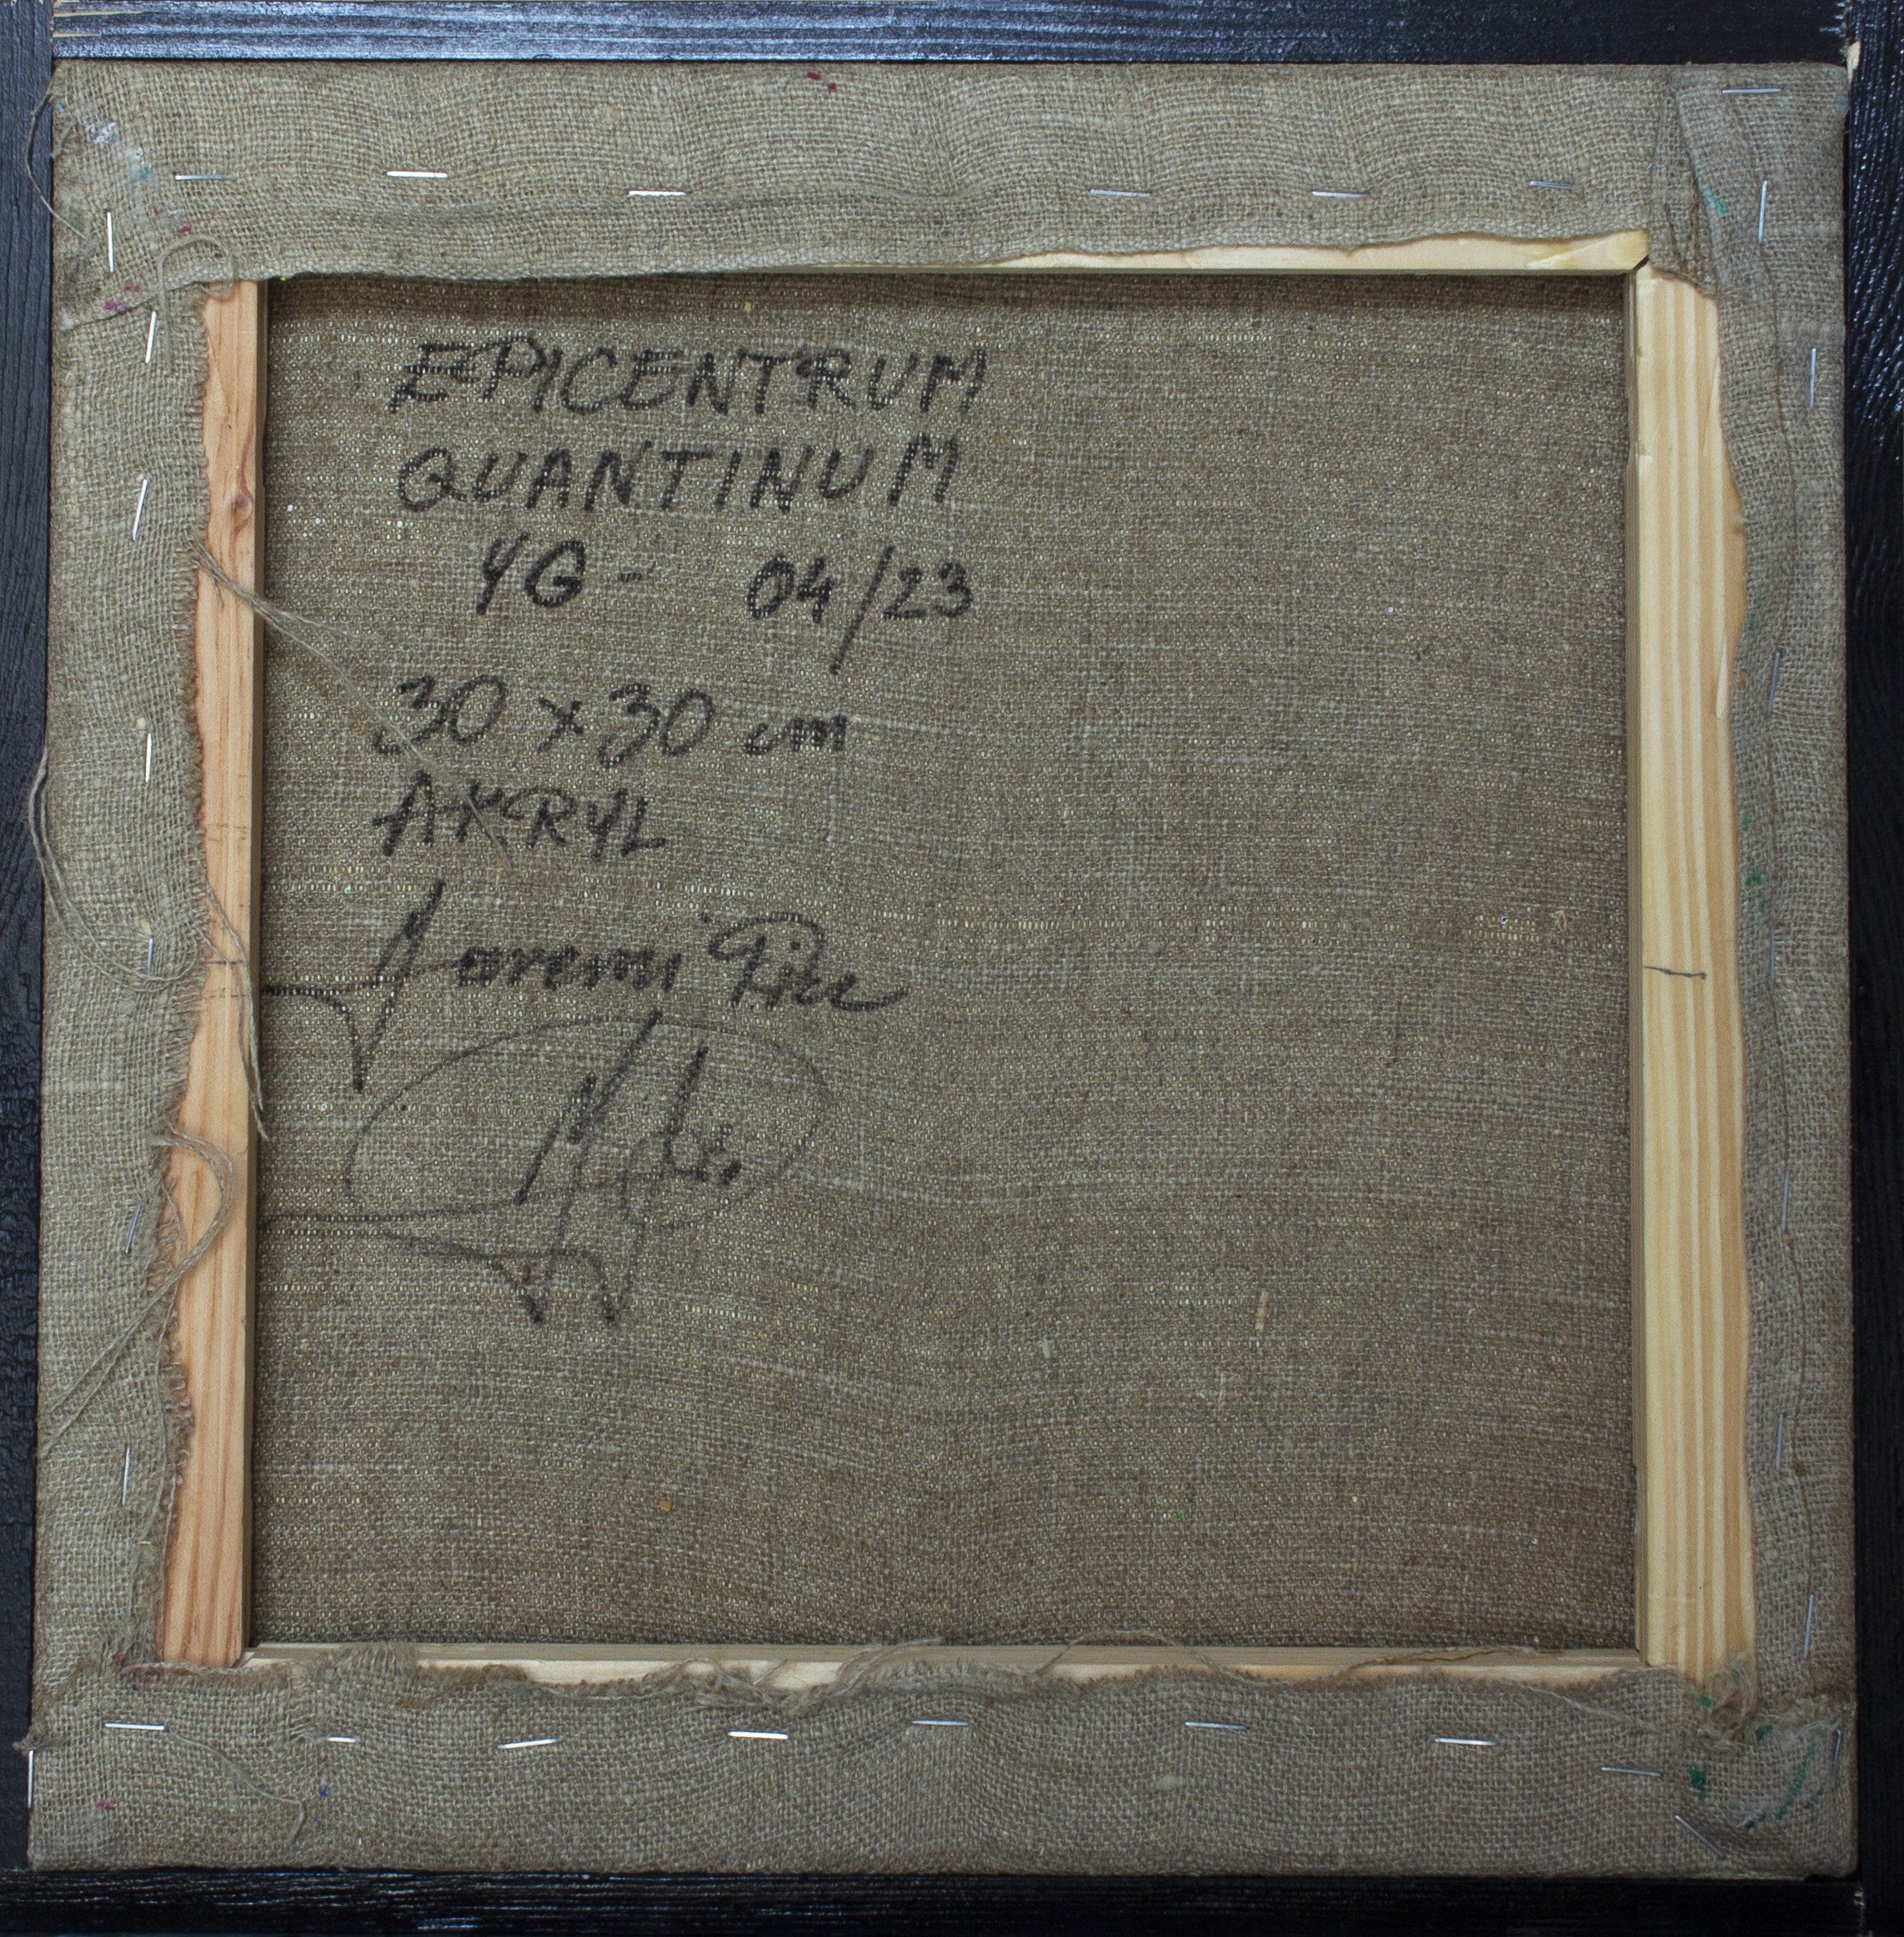 EPICENTRUM
QUANTINUM
YG - 04/23
30 x 30 cm
AKRYL
Jaremi Picz